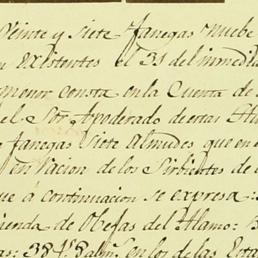 Veinte y siete fanegas nuebe
existentes el 31 del inmedia
menor consta en la Cuenta de
el Sõr. Apoderado de estas Ha
fanegas siete Almudes que en
en racion de los Sirbientes de
a continuacion se expresa:
ienda de Obejas del Alamo:
as: 384 f. 8 alm. son los de las Esta